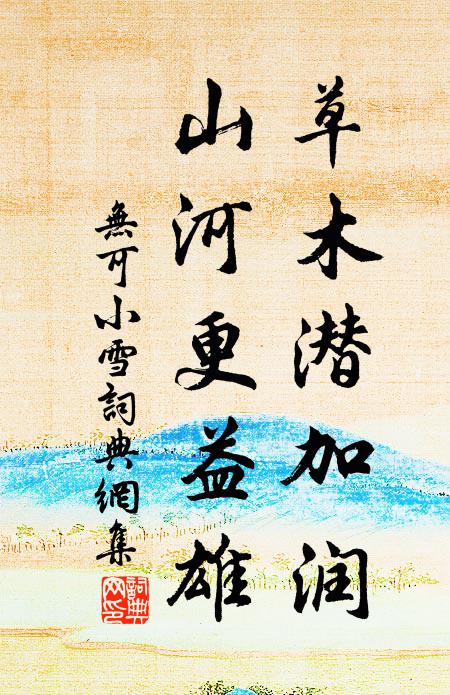 草木潜加润
山河更益雄
無可小雪詞典網集
詞典